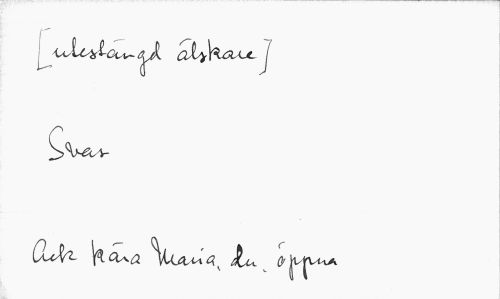 [utestängd älskare]
Svar
Ack kära Maria, du, öppna